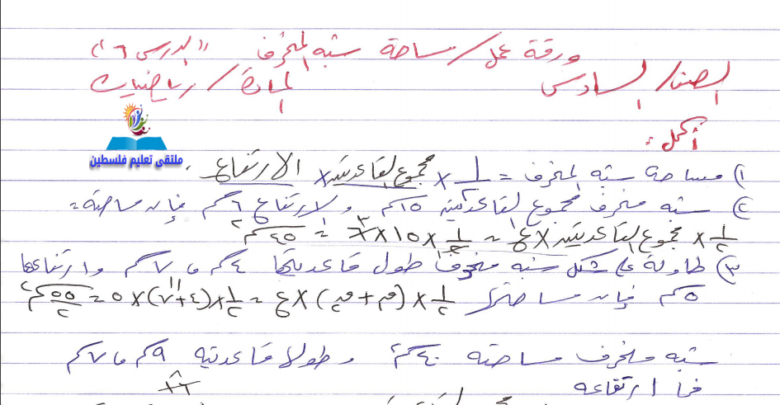 ورقة عمل / مساحة شبه المنحرف "الدرس ٦"
الصف / السادس المادة / رياضيات
أكمل:
ملتقى تعليم فلسطين
١) مساحة شبه المنحرف = ١/٢ × مجموع القاعدتين × الارتفاع.
٢) شبه منحرف مجموع القاعدتين ١٥ كم والارتفاع ٦ كم فإن مساحته =
١/٢ × مجموع القاعدتين × ع = ١/٢ × ١٥ × ٦ = ٤٥ كم٢
٣) طاولة على شكل شبه منحرف طول قاعدتيها ٤ كم ، ٧ كم وارتفاعها
٥ كم فإن مساحتها ١/٢ × (م + ) × ع = ١/٢ × (٤+٧) × ٥ = ٥٥/٢ كم٢
شبه منحرف مساحته ٤٠ كم٢ وطولا قاعدتيه ٩ كم ، ٧ كم
فما ارتفاعه